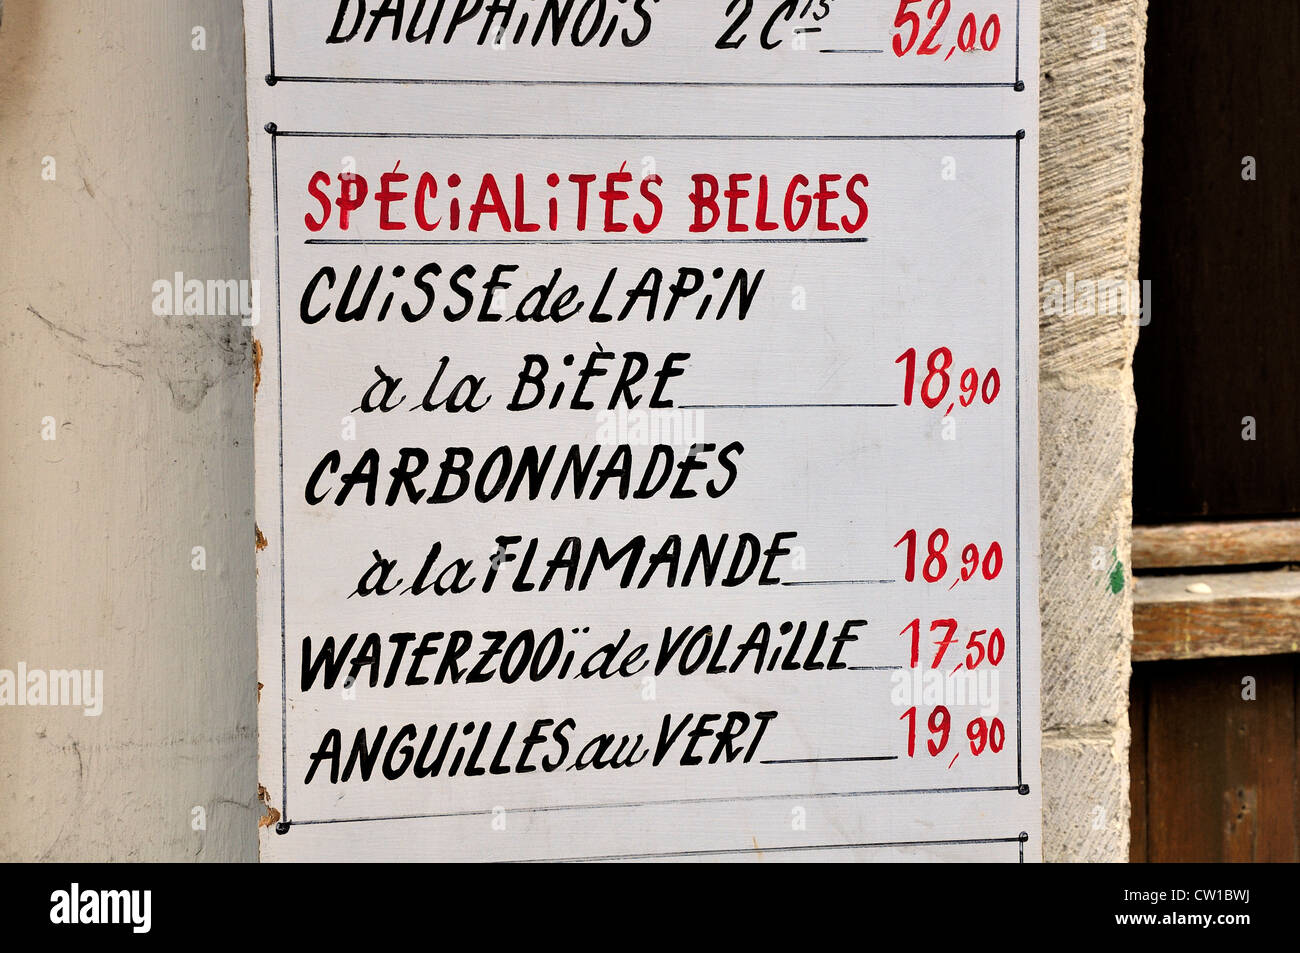 DAUPHiNOiS 2 Cts 52,00
SPÉCiALiTÉS BELGES
CUiSSE de LAPiN
à la BiÈRE 18,90
CARBONNADES
à la FLAMANDE 18,90
WATERZOOï de VOLAiLLE 17,50
ANGUiLLES au VERT 19,90
alamy
Image ID: CW1BWJ
www.alamy.com